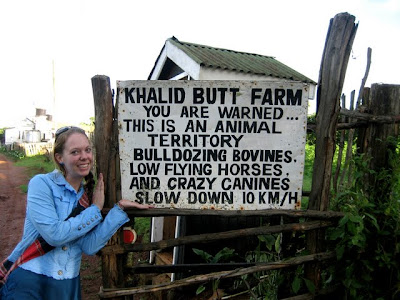 KHALID BUTT FARM
YOU ARE WARNED...
THIS IS AN ANIMAL
TERRITORY
BULLDOZING BOVINES,
LOW FLYING HORSES,
AND CRAZY CANINES
SLOW DOWN 10 KM/H